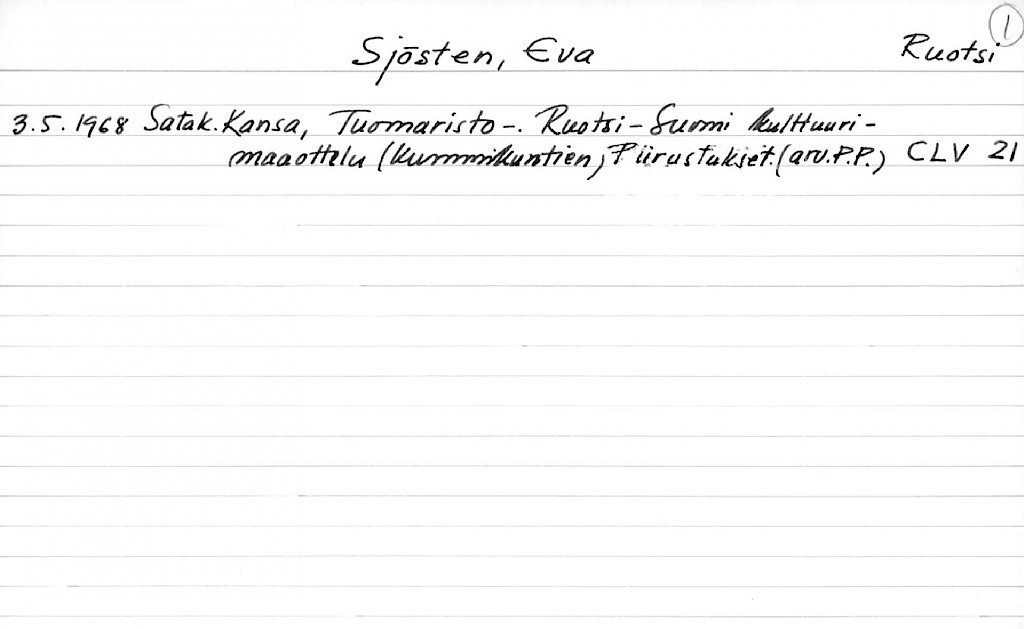 1
Sjösten, Eva Ruotsi
3.5.1968 Satak.Kansa, Tuomaristo-. Ruotsi-Suomi kulttuuri-
maaottelu (kummikuntien) Piirustukset.(arv.P.P.) CLV 21